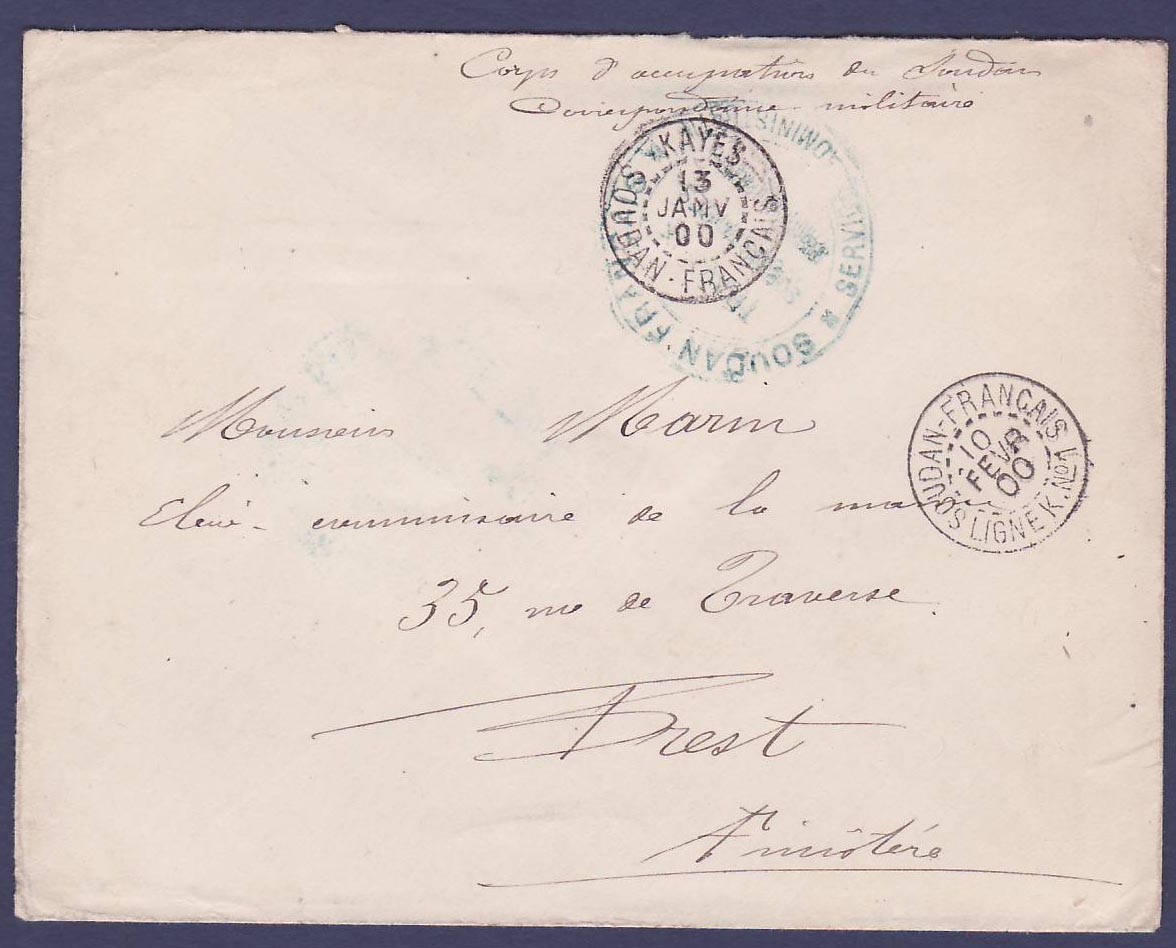 Corps d'occupation du Soudan
Correspondance militaire
KAYES
13
JANV
00
SOUDAN-FRANÇAIS
SOUDAN FRAN
SERVICE
Monsieur Marin
Elève-commissaire de la marine
SOUDAN-FRANÇAIS
10
FEVR
00
LIGNE K. No1
35, rue de Traverse
Brest
Finistère